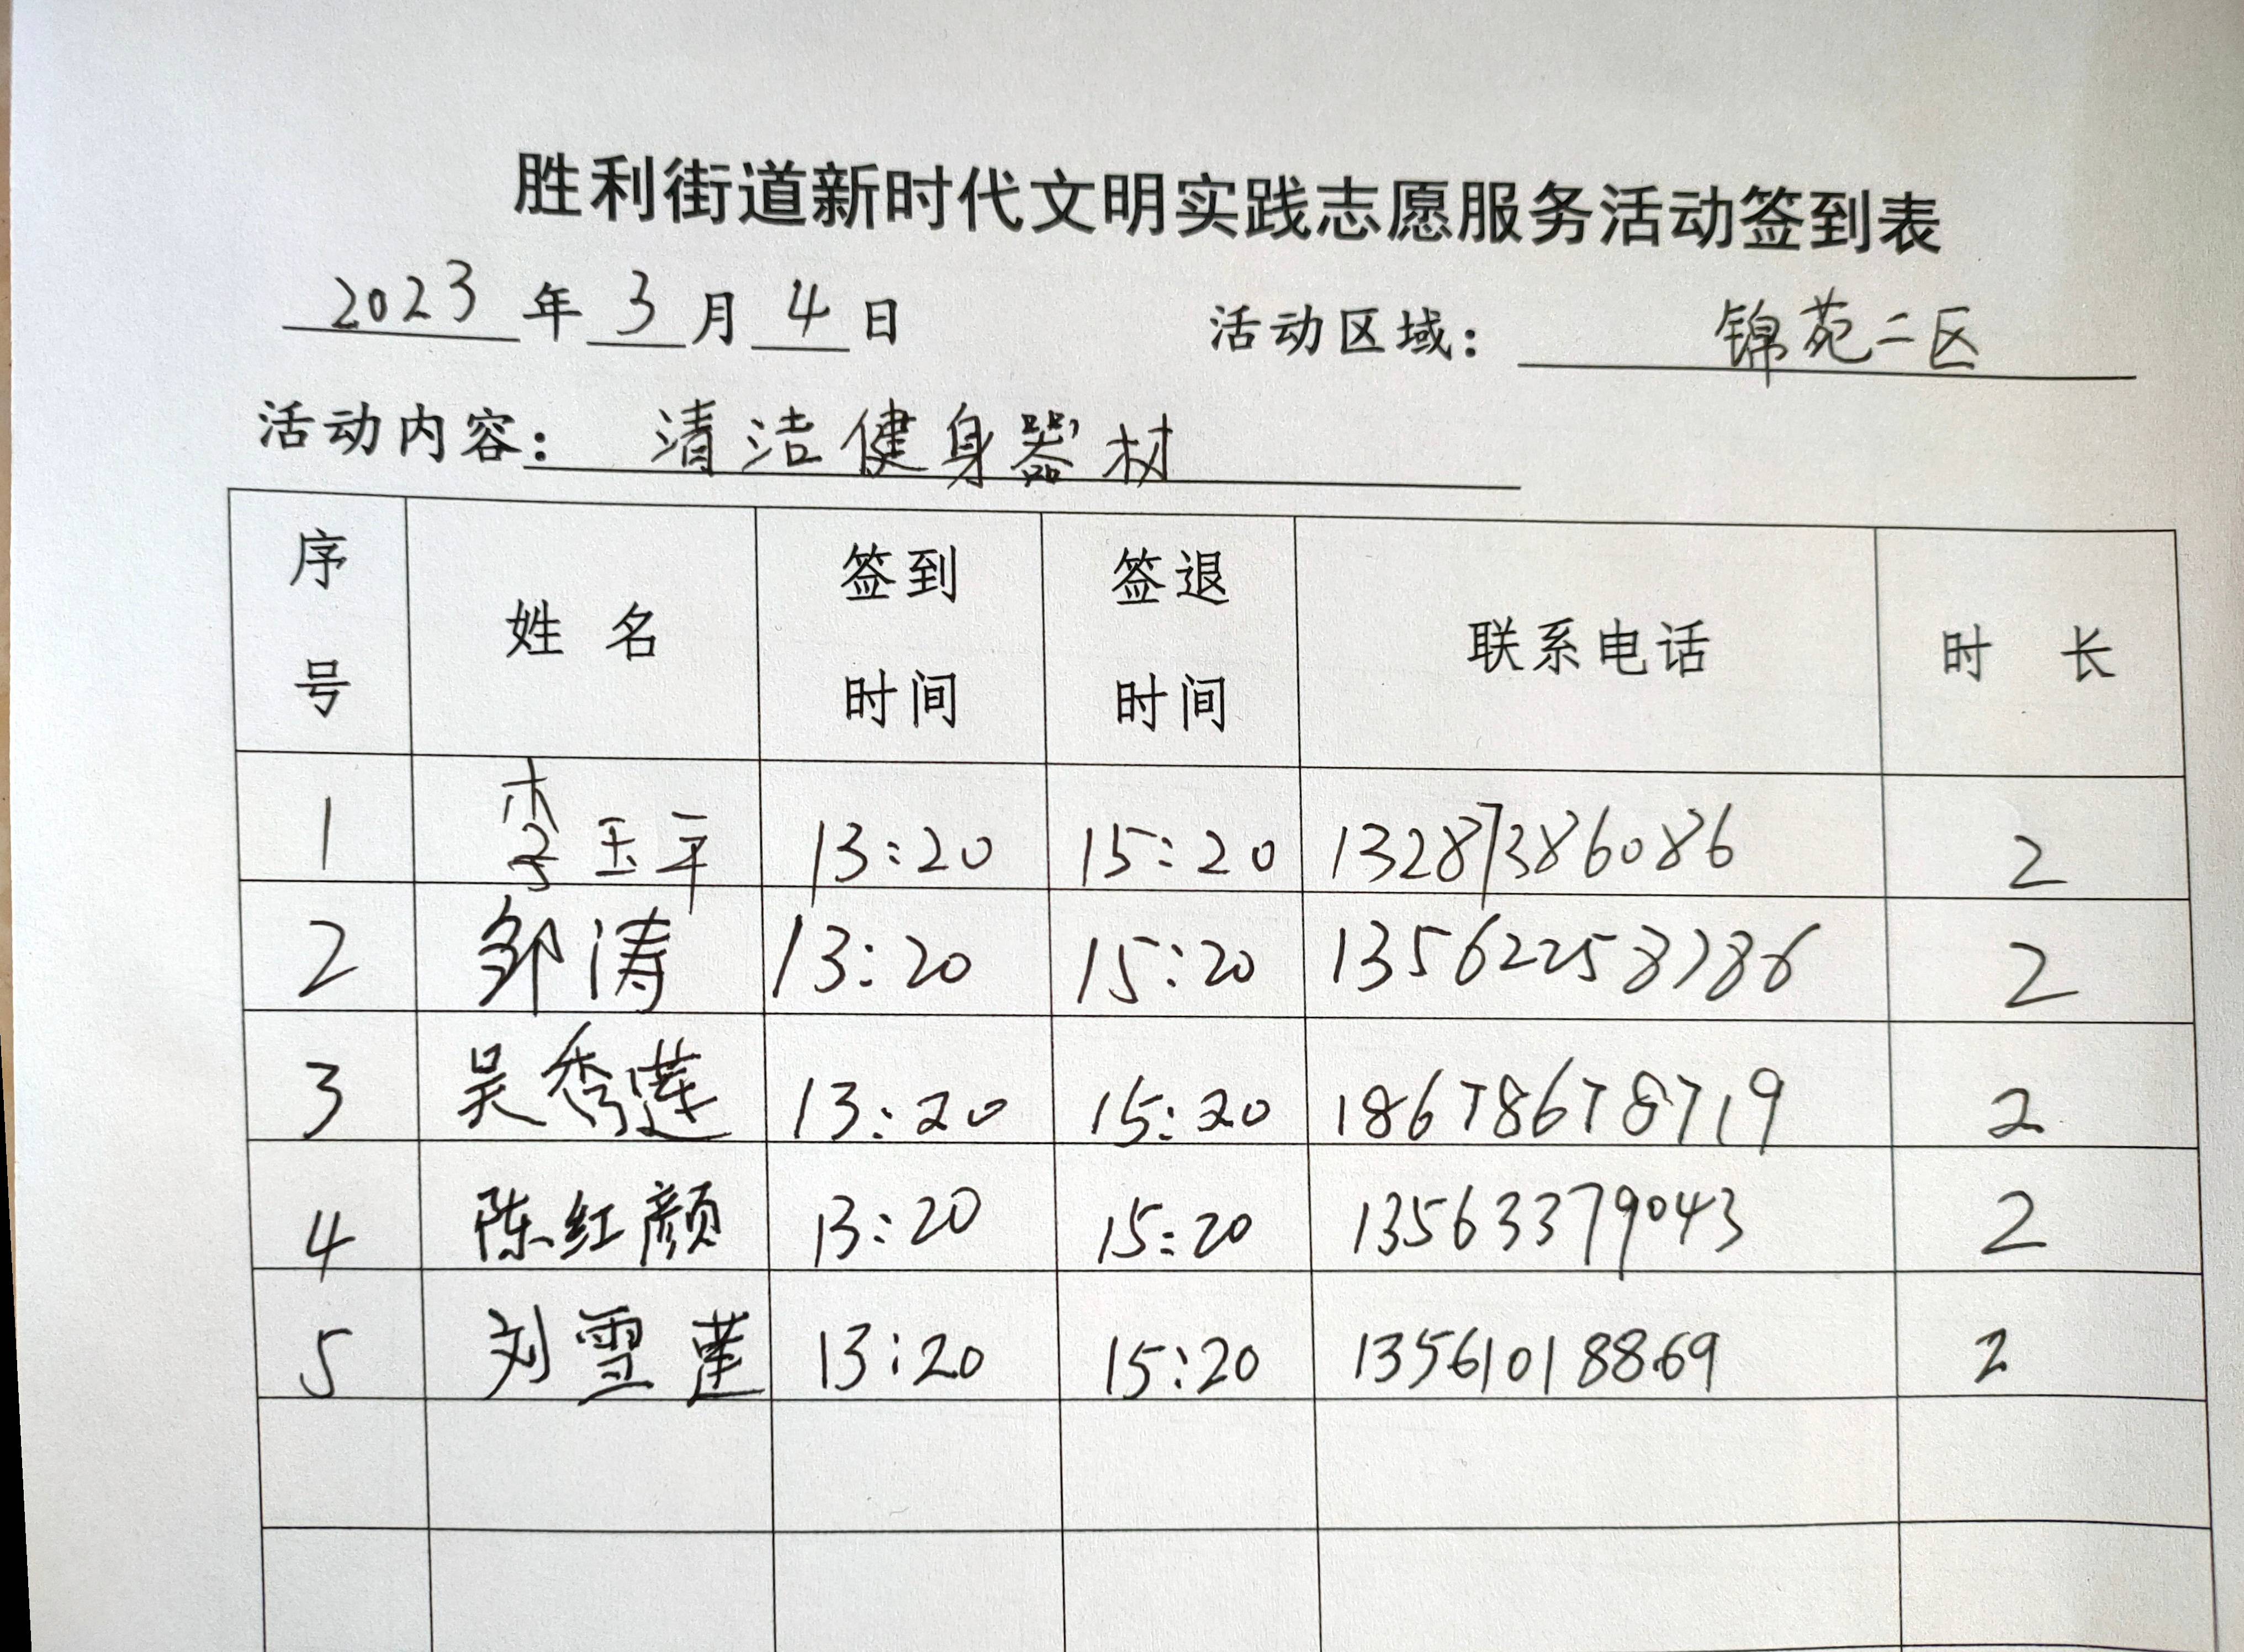 胜利街道新时代文明实践志愿服务活动签到表
2023 年 3 月 4 日 活动区域： 锦苑二区
活动内容： 清洁健身器材
序号 姓名 签到时间 签退时间 联系电话 时长
1 李玉平 13:20 15:20 13287386086 2
2 邹涛 13:20 15:20 13562258786 2
3 吴秀莲 13:20 15:20 18678678719 2
4 陈红颜 13:20 15:20 13563379043 2
5 刘雪莲 13:20 15:20 13561018869 2